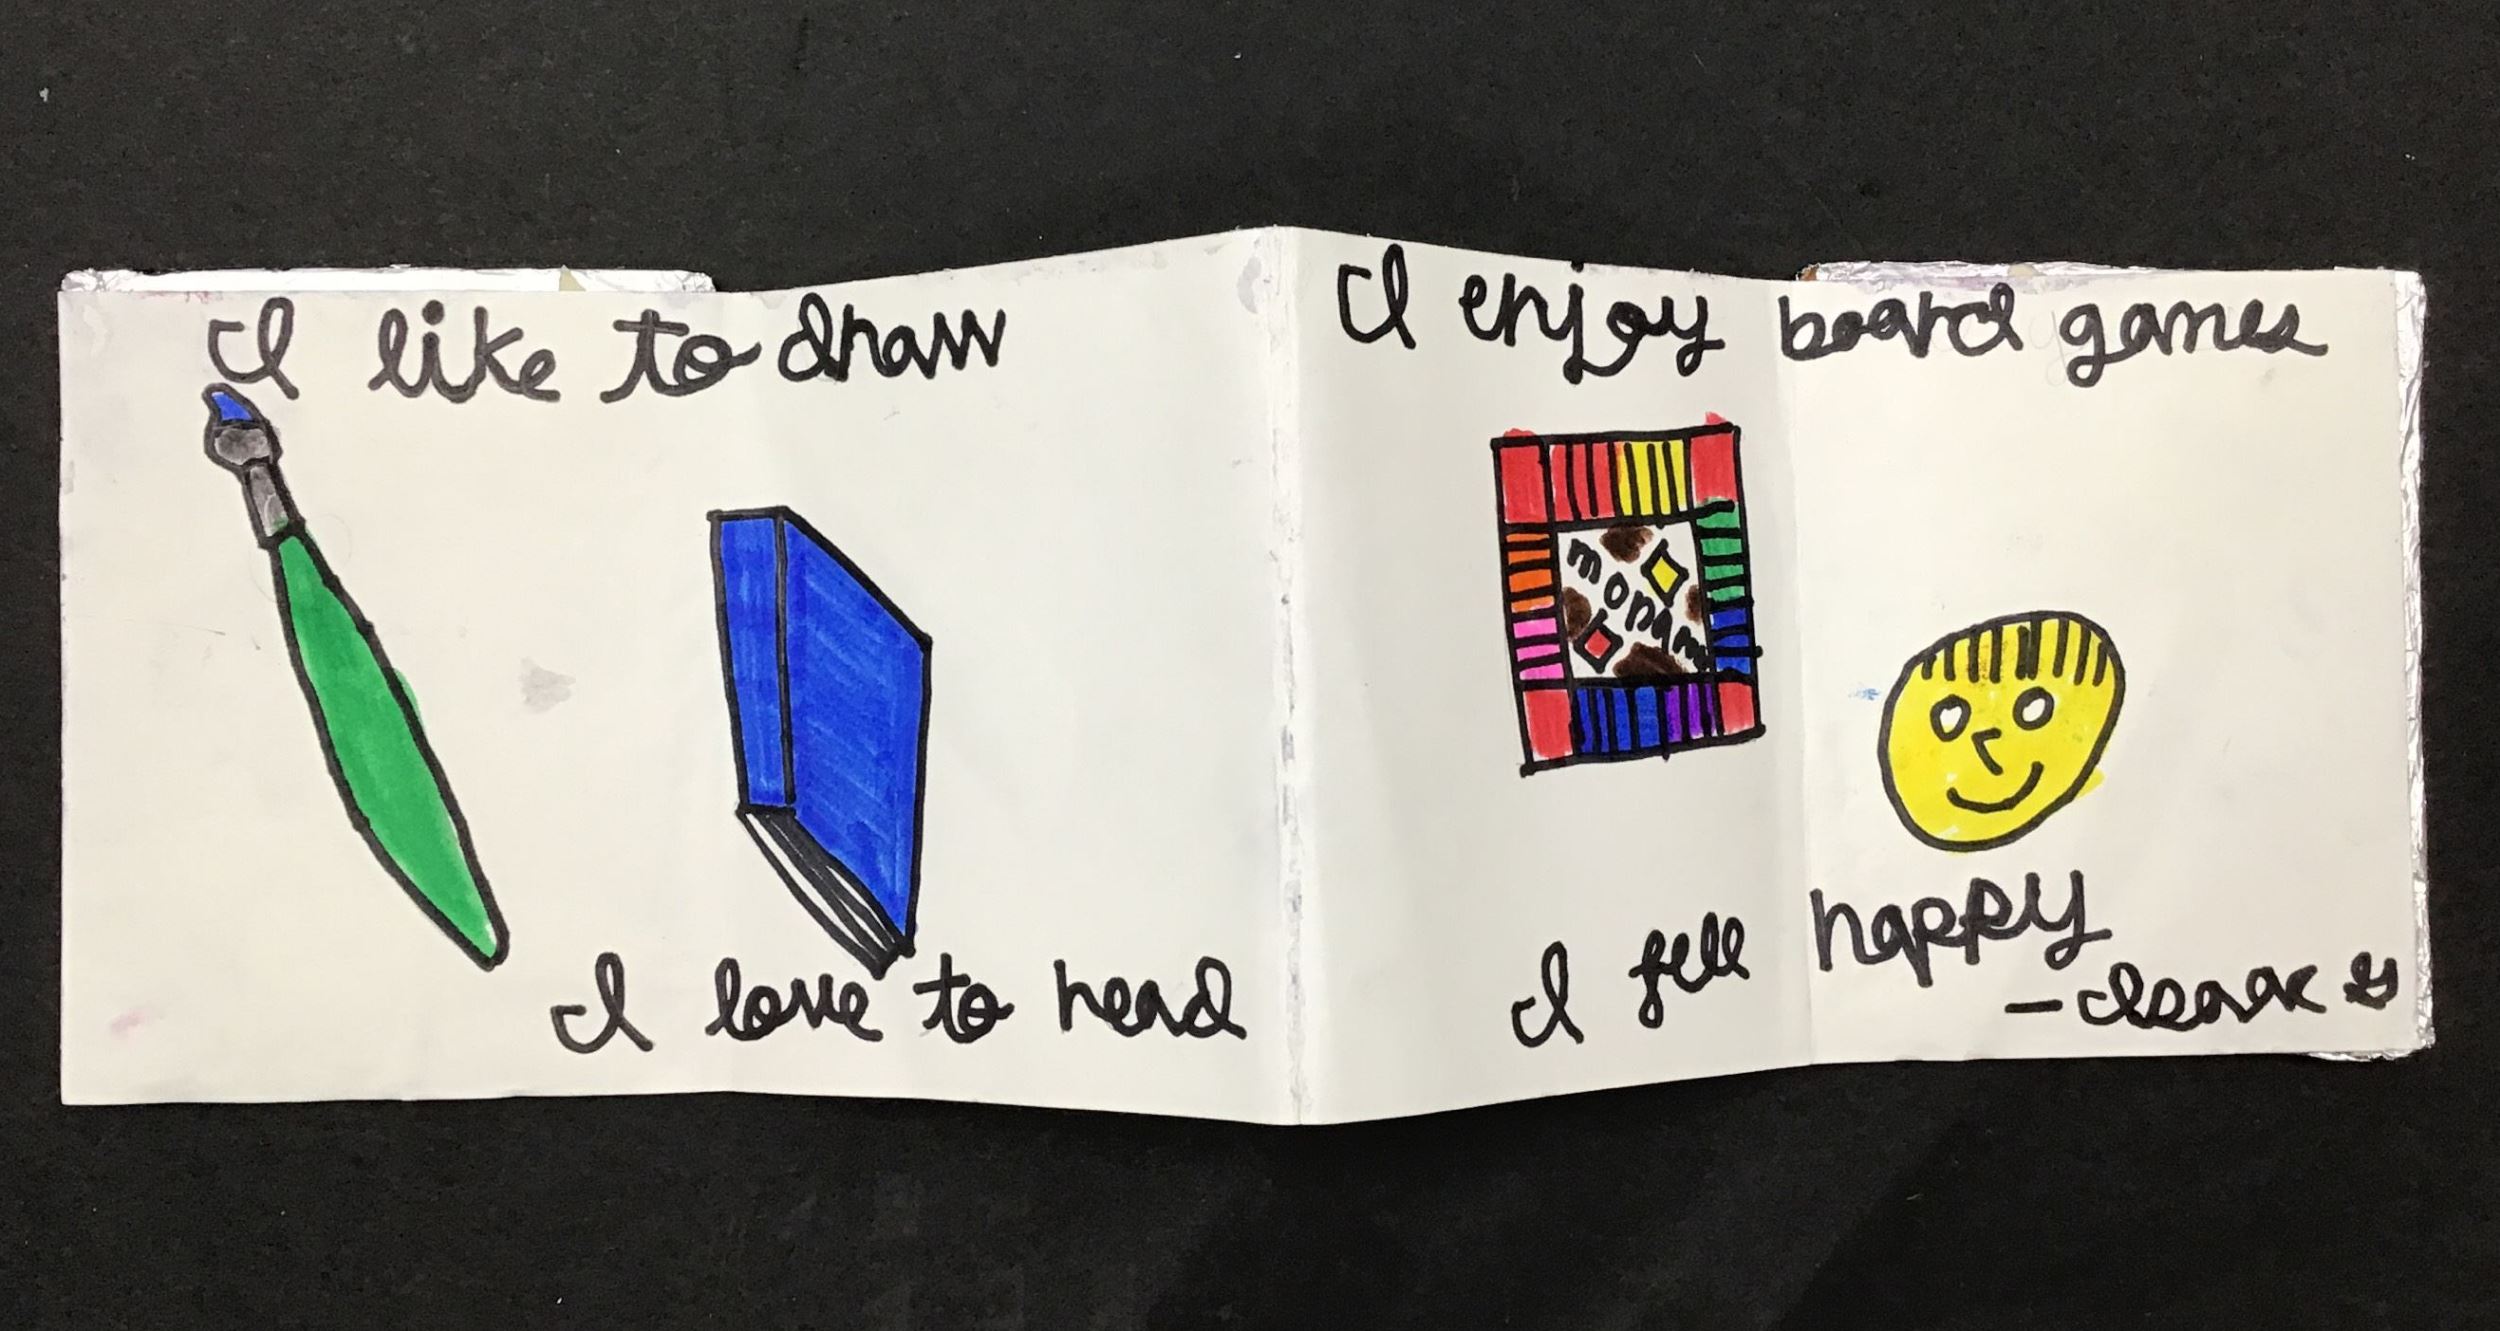 I like to draw
I love to read
I enjoy board games
mopam
I fell happy
-Isaac